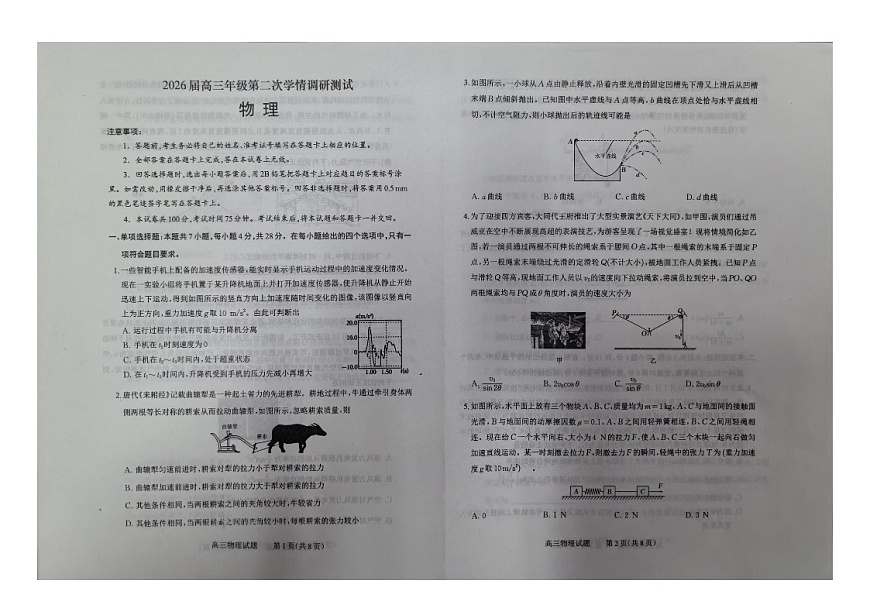 2026届高三年级第二次学情调研测试
物 理
注意事项：
1．答题前，考生务必将自己的姓名、准考证号填写在答题卡上相应的位置。
2．全部答案在答题卡上完成，答在本试卷上无效。
3．回答选择题时，选出每小题答案后，用2B铅笔把答题卡上对应题目的答案标号涂
黑。如需改动，用橡皮擦干净后，再选涂其他答案标号。回答非选择题时，将答案用0.5mm
的黑色笔迹签字笔写在答题卡上。
4．本试卷共100分，考试时间75分钟。考试结束后，将本试题和答题卡一并交回。
一、单项选择题：本题共7小题，每小题4分，共28分。在每小题给出的四个选项中，只有一
项符合题目要求。
1.一些智能手机上配备的加速度传感器，能实时显示手机运动过程中的加速度变化情况。
现在一实验小组将手机置于某升降机地面上并打开加速度传感器，使升降机从静止开始
迅速上下运动，得到如图所示的竖直方向上加速度随时间变化的图像，该图像以竖直向
上为正方向，重力加速度g取10 m/s²。由此可判断出
a(m/s²)
20.0
10.0
0
-10.0
1.00 1.50 t(s)
A. 运行过程中手机有可能与升降机分离
B. 手机在t₂时刻速度为0
C. 手机在t₂~t₃时间内，处于超重状态
D. 在t₁~t₃时间内，升降机受到手机的压力先减小再增大
2.唐代《耒耜经》记载曲辕犁是一种起土省力的先进耕犁。耕地过程中，牛通过牵引身体两
侧两根等长对称的耕索从而拉动曲辕犁，如图所示，忽略耕索质量，则
曲辕犁
耕索
A. 曲辕犁匀速前进时，耕索对犁的拉力小于犁对耕索的拉力
B. 曲辕犁加速前进时，耕索对犁的拉力大于犁对耕索的拉力
C. 其他条件相同，当两根耕索之间的夹角较大时，牛较省力
D. 其他条件相同，当两根耕索之间的夹角较小时，每根耕索的张力较小
高三物理试题 第1页（共8页）
3.如图所示，一小球从A点由静止释放，沿着内壁光滑的固定凹槽先下滑又上滑后从凹槽
末端B点倾斜抛出。已知图中水平虚线与A点等高，b曲线在顶点处恰与水平虚线相
切，不计空气阻力，则小球抛出后的轨迹线可能是
A
水平虚线
B
a
b
c
d
A. a曲线 B. b曲线 C. c曲线 D. d曲线
4.为了迎接四方宾客，大同代王府推出了大型实景演艺《天下大同》，如甲图，演员们通过吊
威亚在空中不断展现高超的表演技艺，为游客呈现了一场视觉盛宴！现将情境简化如乙
图，若一演员通过两根不可伸长的绳索系于腰间O点，其中一根绳索的末端系于固定P
点，另一根绳索末端绕过光滑的定滑轮Q(不计大小)，被地面工作人员紧拽。已知P点
与滑轮Q等高，现地面工作人员以v₀的速度向下拉动绳索，将演员拉到空中，当PO、QO
两根绳索均与PQ成θ角度时，演员的速度大小为
P
Q
O
v₀
甲
乙
A. v₀/sin 2θ B. 2v₀cos θ C. v₀/sin θ D. 2v₀sin θ
5.如图所示，水平面上放有三个物块A、B、C，质量均为m＝1kg，A、C与地面间的接触面
光滑，B与地面间的动摩擦因数μ＝0.1，A、B之间用轻弹簧相连，B、C之间用轻绳相
连。现在给C一个水平向右、大小为4 N的拉力F，使A、B、C三个木块一起向右做匀
加速直线运动。某一时刻撤去拉力F，则撤去力F的瞬间，轻绳中的张力T为（重力加速
度g取10m/s²）
A
B
C
F
A. 0 B. 1 N C. 2 N D. 3 N
高三物理试题 第2页（共8页）